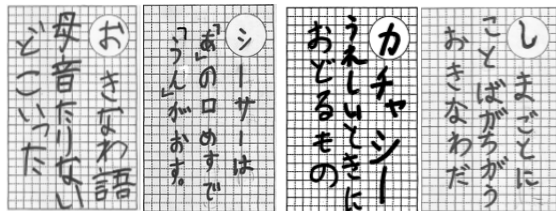 おきなわ語
母音たりない
どこいった
シーサーは
「あ」の口めすで
「うん」がおす。
カチャシー
うれしいときに
おどるもの
しまごとに
ことばがちがう
おきなわだ